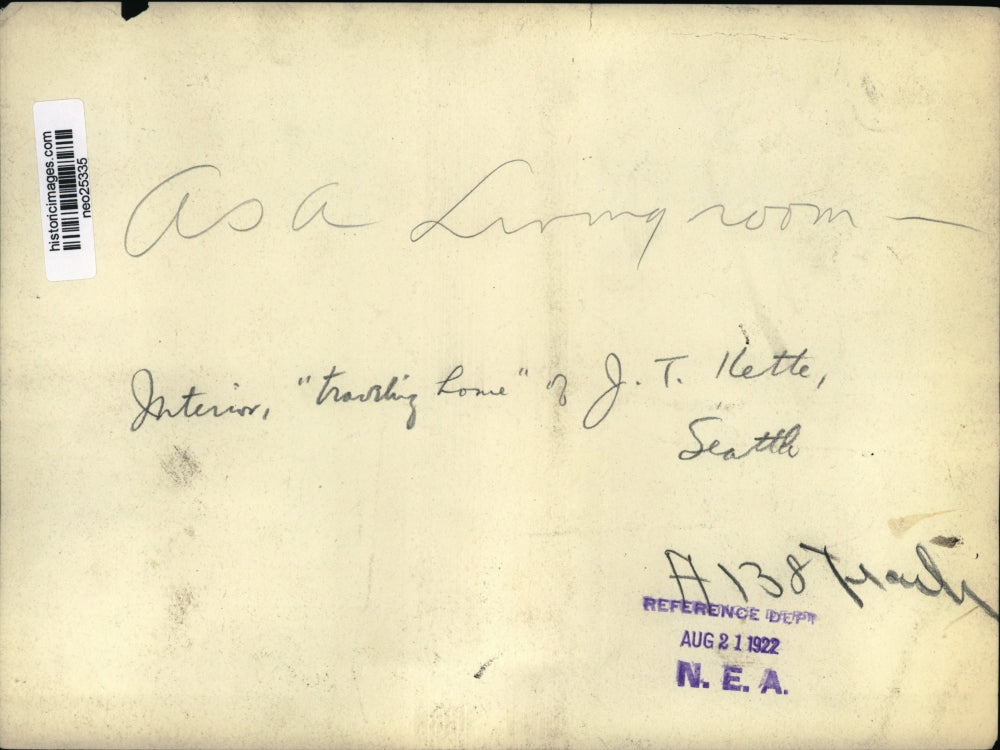 historicimages.com
neo25335
As a Living room —
Interior, "traveling home" of J. T. Kette,
Seattle
A138
REFERENCE DEPT
AUG 21 1922
N. E. A.